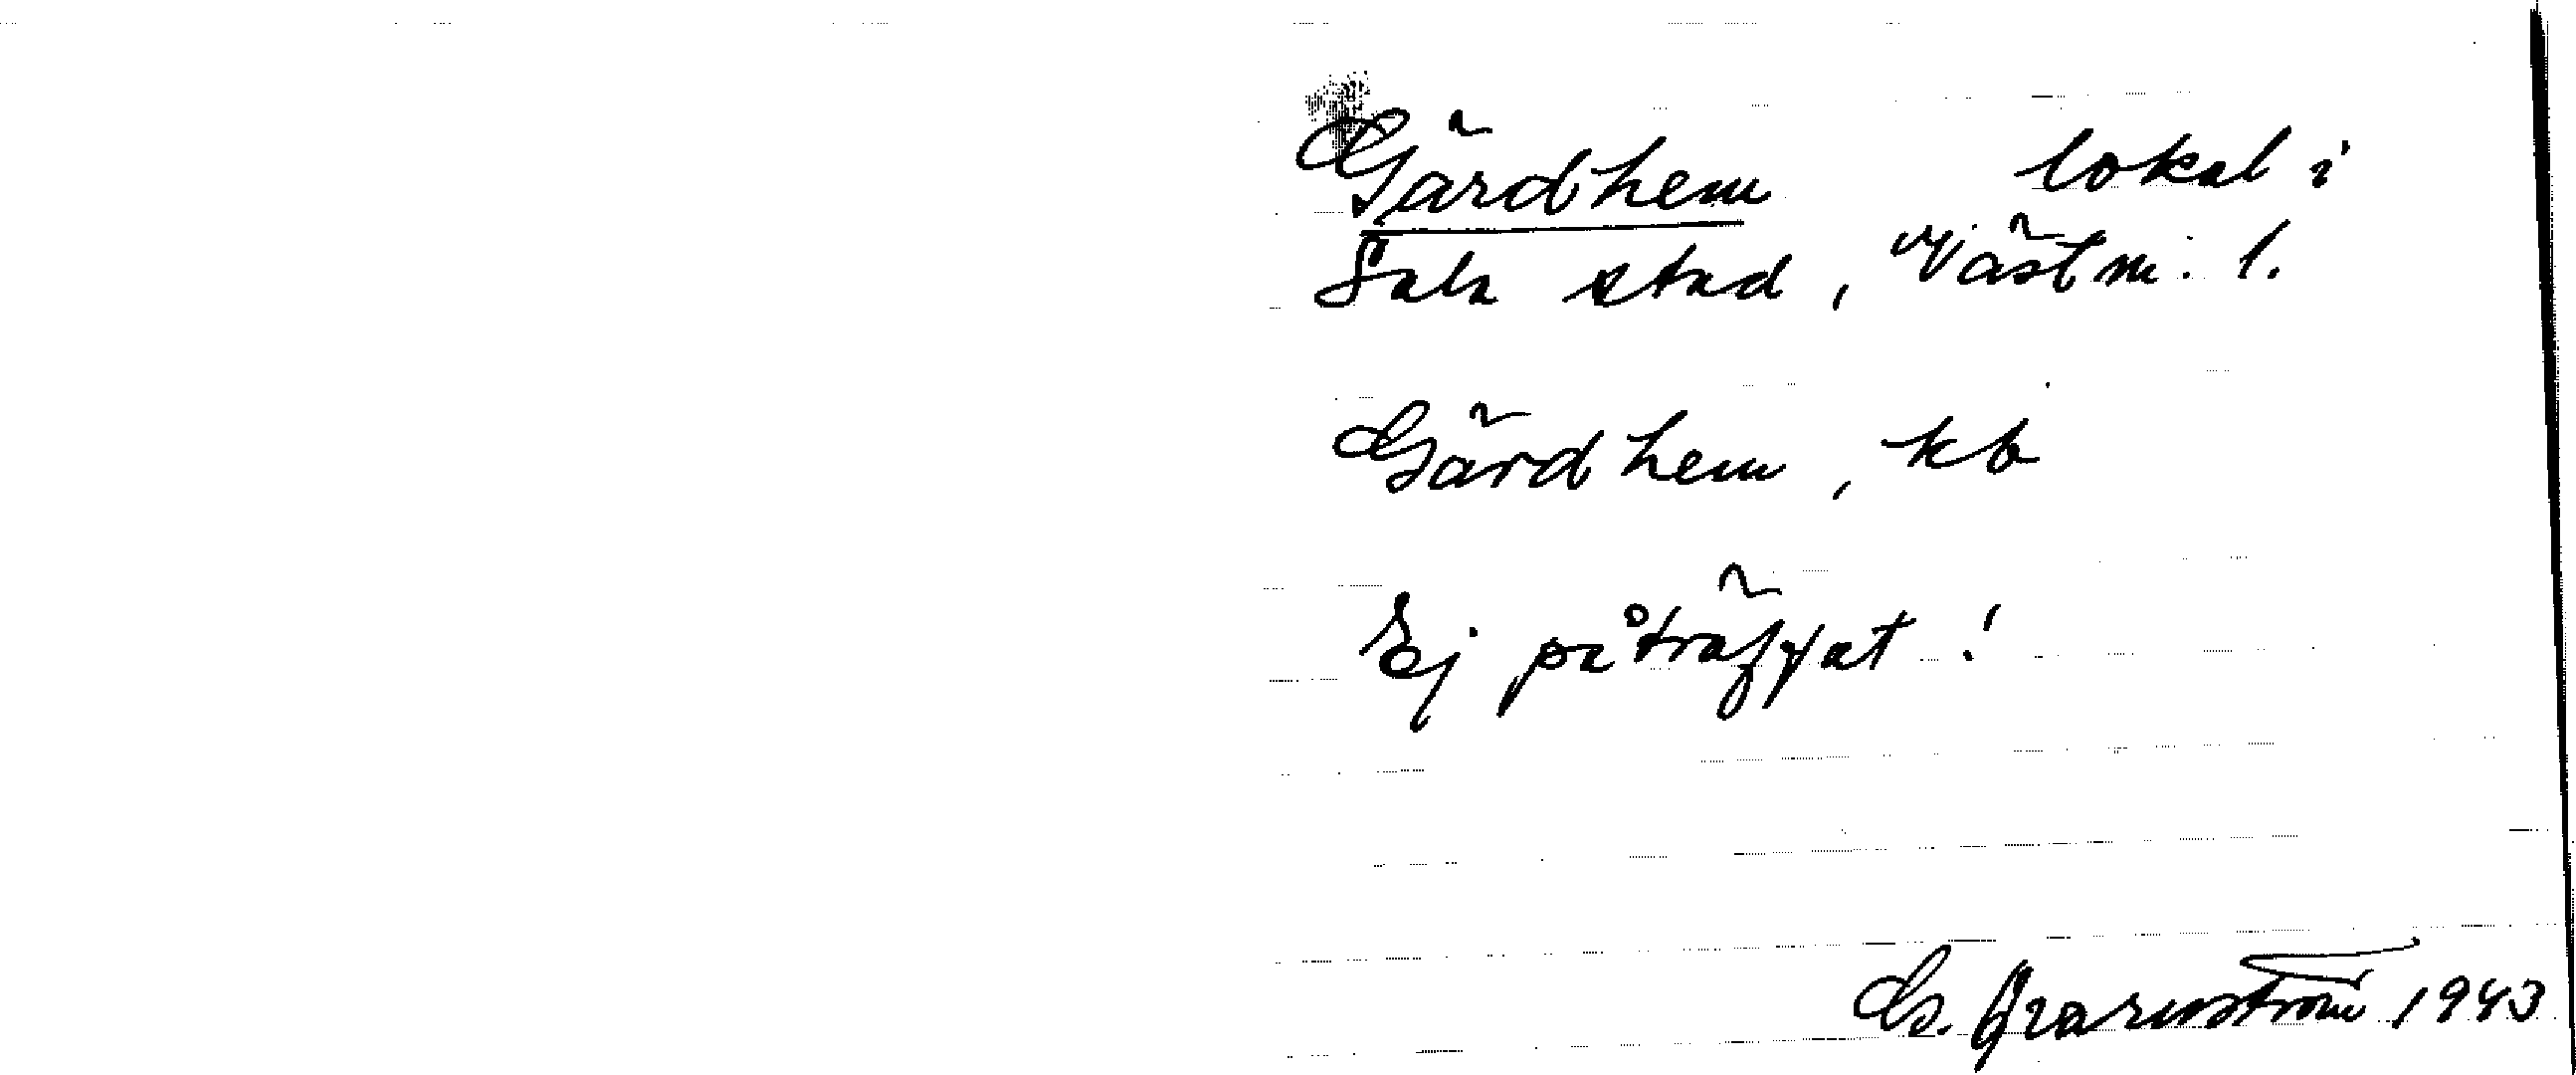 Gärdhem lokal i
Sala stad, Västm. l.
Gärdhem, kb
Ej påträffat!
G. Qvarnström 1943